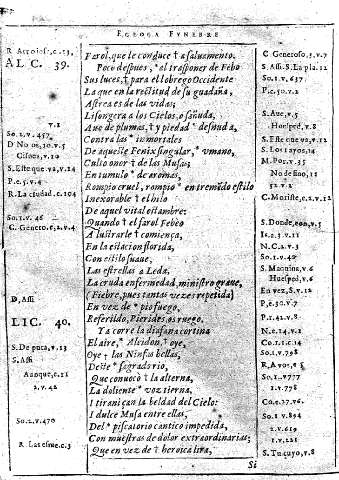 EGLOGA FVNEBRE
R. Arroios, c. 13.
AL C. 39.
Farol, que le conduce † a saluamento.
Poco despues, * al trasponer de Febo
Sus luces, † para el lobrego Occidente
La que en la rectitud de su guadaña,
Astrea es de las vidas;
Lisongera a los Cielos, o sañuda,
v. 1
Aue de plumas, † y piedad * desnuda,
So. 1. v. 457
Contra las * inmortales
D No os, 30. v. 5
De aqueste Fenix singular, * vmano,
Cisnes, v. 10
Culto onor † de las Musas;
S. Este que va, v. 14
En tumulo * de aromas,
P. c. 5. v. 4
Rompio cruel, rompio * en tremido estilo
R. La ciudad. c. 104
Inexorable † el hilo
De aquel vital estambre:
So. 1. v. 46
Quando † el farol Febeo
C. Genero. e, 2. v. 4
A lustrarle † comiença,
En la estacion florida,
Con estilo suaue,
Las estrellas a Leda,
La cruda enfermedad, ministro graue,
D, Assi
(Fiebre, pues tantas vezes repetida)
En vez de * pio fuego,
LIC. 40.
Referildo, Pierides, os ruego.
Ya corre la diafana cortina
S. De pura, v. 13
El aire, * Alcidon, † oye,
S. Assi
Oye † las Ninfas bellas,
Aunque, c. 12
Deste * sagrado rio,
2. v. 42
Que conuocò † la alterna,
La doliente * voz tierna,
I tiraniçan la beldad del Cielo:
I dulce Musa entre ellas,
So. 2. v. 470
Del * piscatorio cantico impedida,
Con muestras de dolor extraordinarias;
R. Las esme. c. 3
Que en vez de † heroica lira,
Si
C. Generoso, 5. v. 7
S. Assi. S. La pla. 12
So. 1. v. 637
P. c. 50. v. 2
S. Aue, v. 5
Huesped, v. 8
S. Este que va, v. 12
S. Los raros, 14
M. Por. v. 35
No de fino, 11
52. v. 2
C. Moriste, c. 2. v. 12
S. Donde, eon, v. 5
N. C. 2. v. 3
So. 1. v. 40
S. Maquina, v. 6
Huesped, v. 6
En vez, S. v. 12
P. c. 50. v. 7
P. c. 42. v. 8
N. c. 14. v. 1
Co. 1. s. c. 14
So. 1. v. 798
So. 1. v. 777
1. v. 778
Ca. c. 37. v. 6
So. 1. v. 894
2. v. 619
1. v. 221
S. Tu cuyo, v. 8